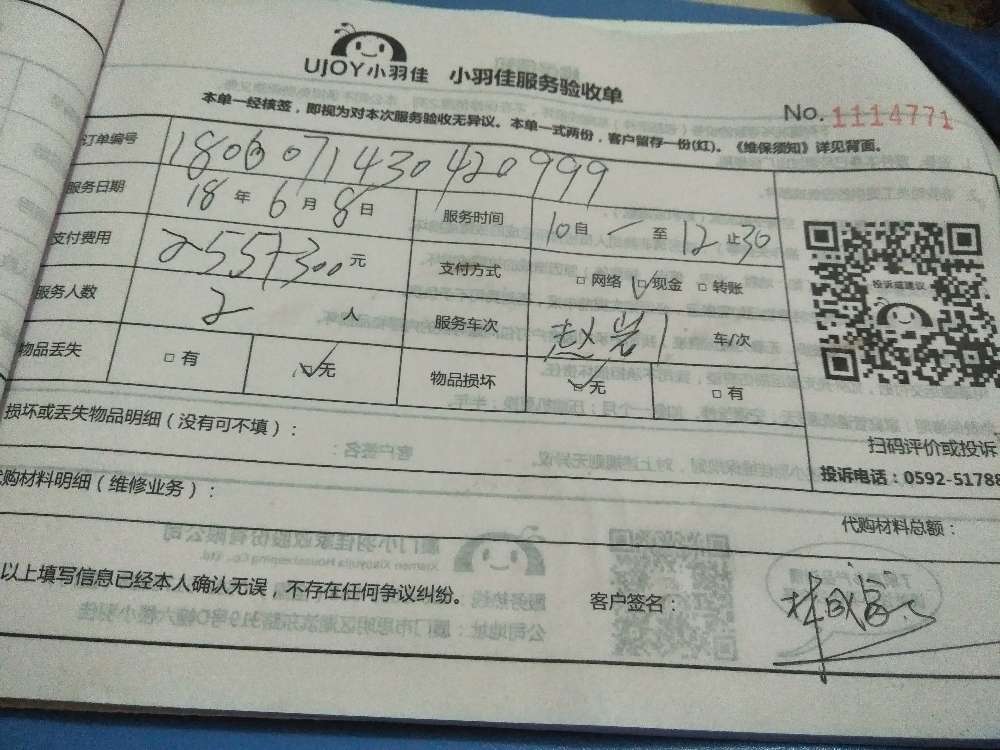 UJOY小羽佳 小羽佳服务验收单
No. 1114771
本单一经核签，即视为对本次服务验收无异议。本单一式两份，客户留存一份(红)。《维保须知》详见背面。
订单编号 1806071430420999
服务日期 18 年 6 月 8 日 服务时间 10 自 一 至 12 止 30
支付费用 255+300 元 支付方式 □ 网络 □ 现金 □ 转账
服务人数 2 人 服务车次 赵岩 车/次
物品丢失 □ 有 □ 无 物品损坏 □ 无 □ 有
投诉或建议
扫码评价或投诉
投诉电话：0592-51788
损坏或丢失物品明细（没有可不填）：
代购材料明细（维修业务）：
代购材料总额：
以上填写信息已经本人确认无误，不存在任何争议纠纷。
客户签名：